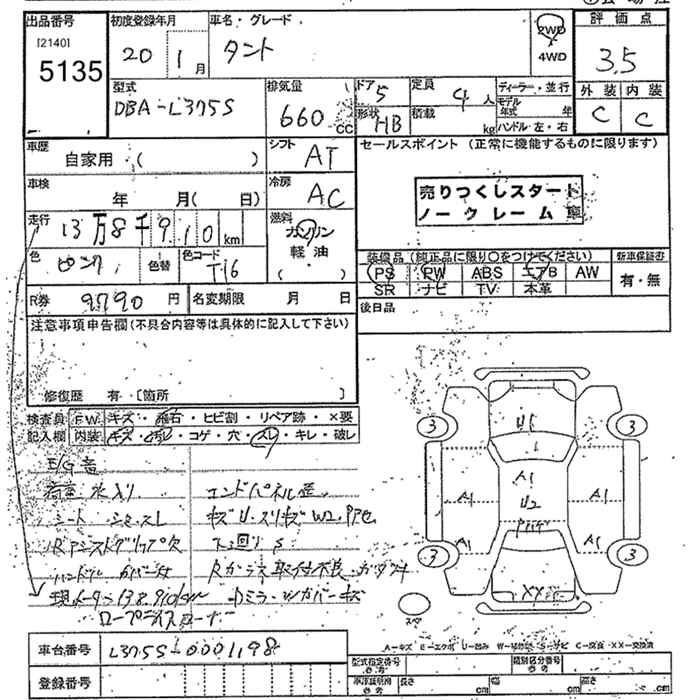 出品番号 初度登録年月 車名・グレード 評価点
[2140] 5135 20 1月 タント 2WD 4WD 3.5
型式 排気量 ドア 5 定員 4人 ディーラー・並行 外装 内装
DBA-L375S 660cc 形状 HB 積載 kg モデル年式 年 ハンドル 左・右 C C
車歴 シフト セールスポイント (正常に機能するものに限ります)
自家用 ( ) AT
車検 年 月( 日) 冷房 AC
売りつくしスタート
ノークレーム車
走行 13万8千910km 燃料 ガソリン
軽油
( )
色 ピンク 色替 色コード T16
装備品 (純正品に限り○をつけてください) 新車保証書
PS PW ABS エアB AW 有・無
SR ナビ TV 本革
R券 9790円 名変期限 月 日 後日品
注意事項申告欄 (不具合内容等は具体的に記入して下さい)
修復歴 有 [箇所 ]
検査員 FW キズ・飛石・ヒビ割・リペア跡・×要
記入欄 内装 キズ・汚れ・コゲ・穴・スレ・キレ・破レ
E/G音
荷室 水入り エンドパネル歪
シート シミ・スレ
下回りS
現メーター138,910km
ロープライスコーナー
3 3 3 3
U1 A1 U2 A1 A1 A1 A1 XX
スペア
A-キズ E-エクボ U-凹み
車台番号 L375S-0001198 型式指定番号 類別区分番号
登録番号 長さ cm 幅 cm 高さ cm